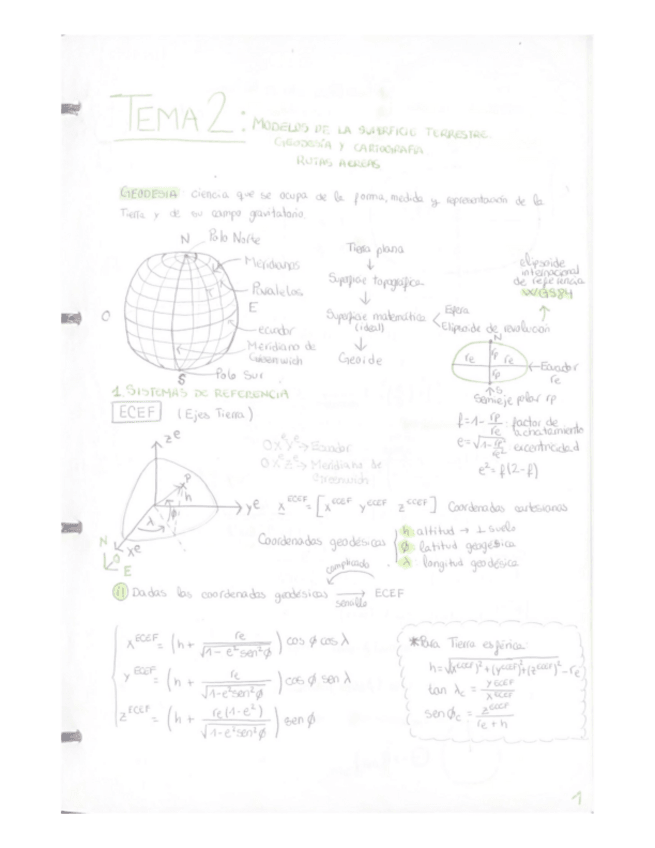 TEMA 2: MODELOS DE LA SUPERFICIE TERRESTRE
GEODESÍA Y CARTOGRAFÍA
RUTAS AEREAS
GEODESIA ciencia que se ocupa de la forma, medida y representación de la
Tierra y de su campo gravitatorio.
N Polo Norte
Meridianos
Paralelos
O
E
ecuador
Meridiano de
Greenwich
S Polo Sur
Tierra plana
↓
Superficie topográfica
↓
Superficie matemática
(ideal)
↓
Geoide
Esfera
Elipsoide de revolución
elipsoide
internacional
de referencia
WGS84
↑
N
re rp re
rp
Ecuador
re
S
Semieje polar rp
f = 1 - rp/re : factor de
achatamiento
e = √(1 - rp²/re²) excentricidad
e² = f(2-f)
1. SISTEMAS DE REFERENCIA
ECEF (Ejes Tierra)
zᵉ
P
h
ϕ
λ
yᵉ
xᵉ
N
O
E
OXᵉYᵉ → Ecuador
OXᵉZᵉ → Meridiano de
Greenwich
x^ECEF = [x^ECEF y^ECEF z^ECEF] Coordenadas cartesianas
Coordenadas geodésicas
h: altitud → ⊥ suelo
ϕ: latitud geodésica
λ: longitud geodésica
complicado
i) Dadas las coordenadas geodésicas → ECEF
sencillo
x^ECEF = (h + re/√(1-e²sen²ϕ)) cos ϕ cos λ
y^ECEF = (h + re/√(1-e²sen²ϕ)) cos ϕ sen λ
z^ECEF = (h + re(1-e²)/√(1-e²sen²ϕ)) sen ϕ
*Para Tierra esférica:
h = √((x^ECEF)² + (y^ECEF)² + (z^ECEF)²) - re
tan λc = y^ECEF/x^ECEF
sen ϕc = z^ECEF/(re + h)
1